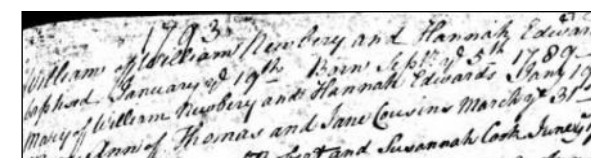 1793
William of William Newbery and Hannah Edwar
baptized January ye 19th Born Sept ye 5th 1789
Mary of William Newbery and Hannah Edwards Jany 19
Ann of Thomas and Jane Cousins March ye 31
and Susannah Cook June ye